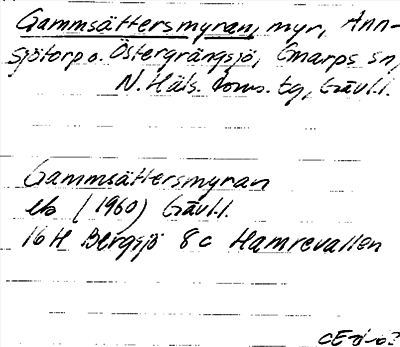 Gammsättersmyran, myr, Ann-
sjötorp o. Östergrängsjö, Gnarps sn,
N. Häls. doms. tg, Gävl.l.
Gammsättersmyran
eb (1960) Gävl.l.
16H Bergsjö 8c Hamrevallen